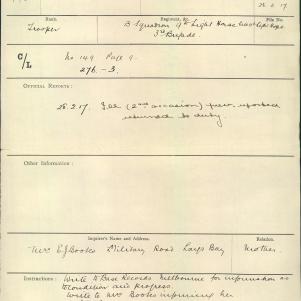 26. 2. 17
Rank.
Regiment, &c.
File No.
Trooper
B Squadron 9th Light Horse
3rd Brigade.
C/L
No 149 Page 9.
276.-3.
Official Reports:
26.2.17. Ill (2nd occasion) prev. reported
returned to duty.
Other Information:
Inquirer's Name and Address.
Relation.
Mrs E J Books Military Road Largs Bay
Mother
Instructions: Write to Base Records Melbourne for information as
to condition and progress.
Write to Mrs Books informing her